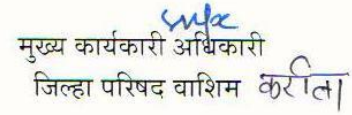 मुख्य कार्यकारी अधिकारी
जिल्हा परिषद वाशिम करीता